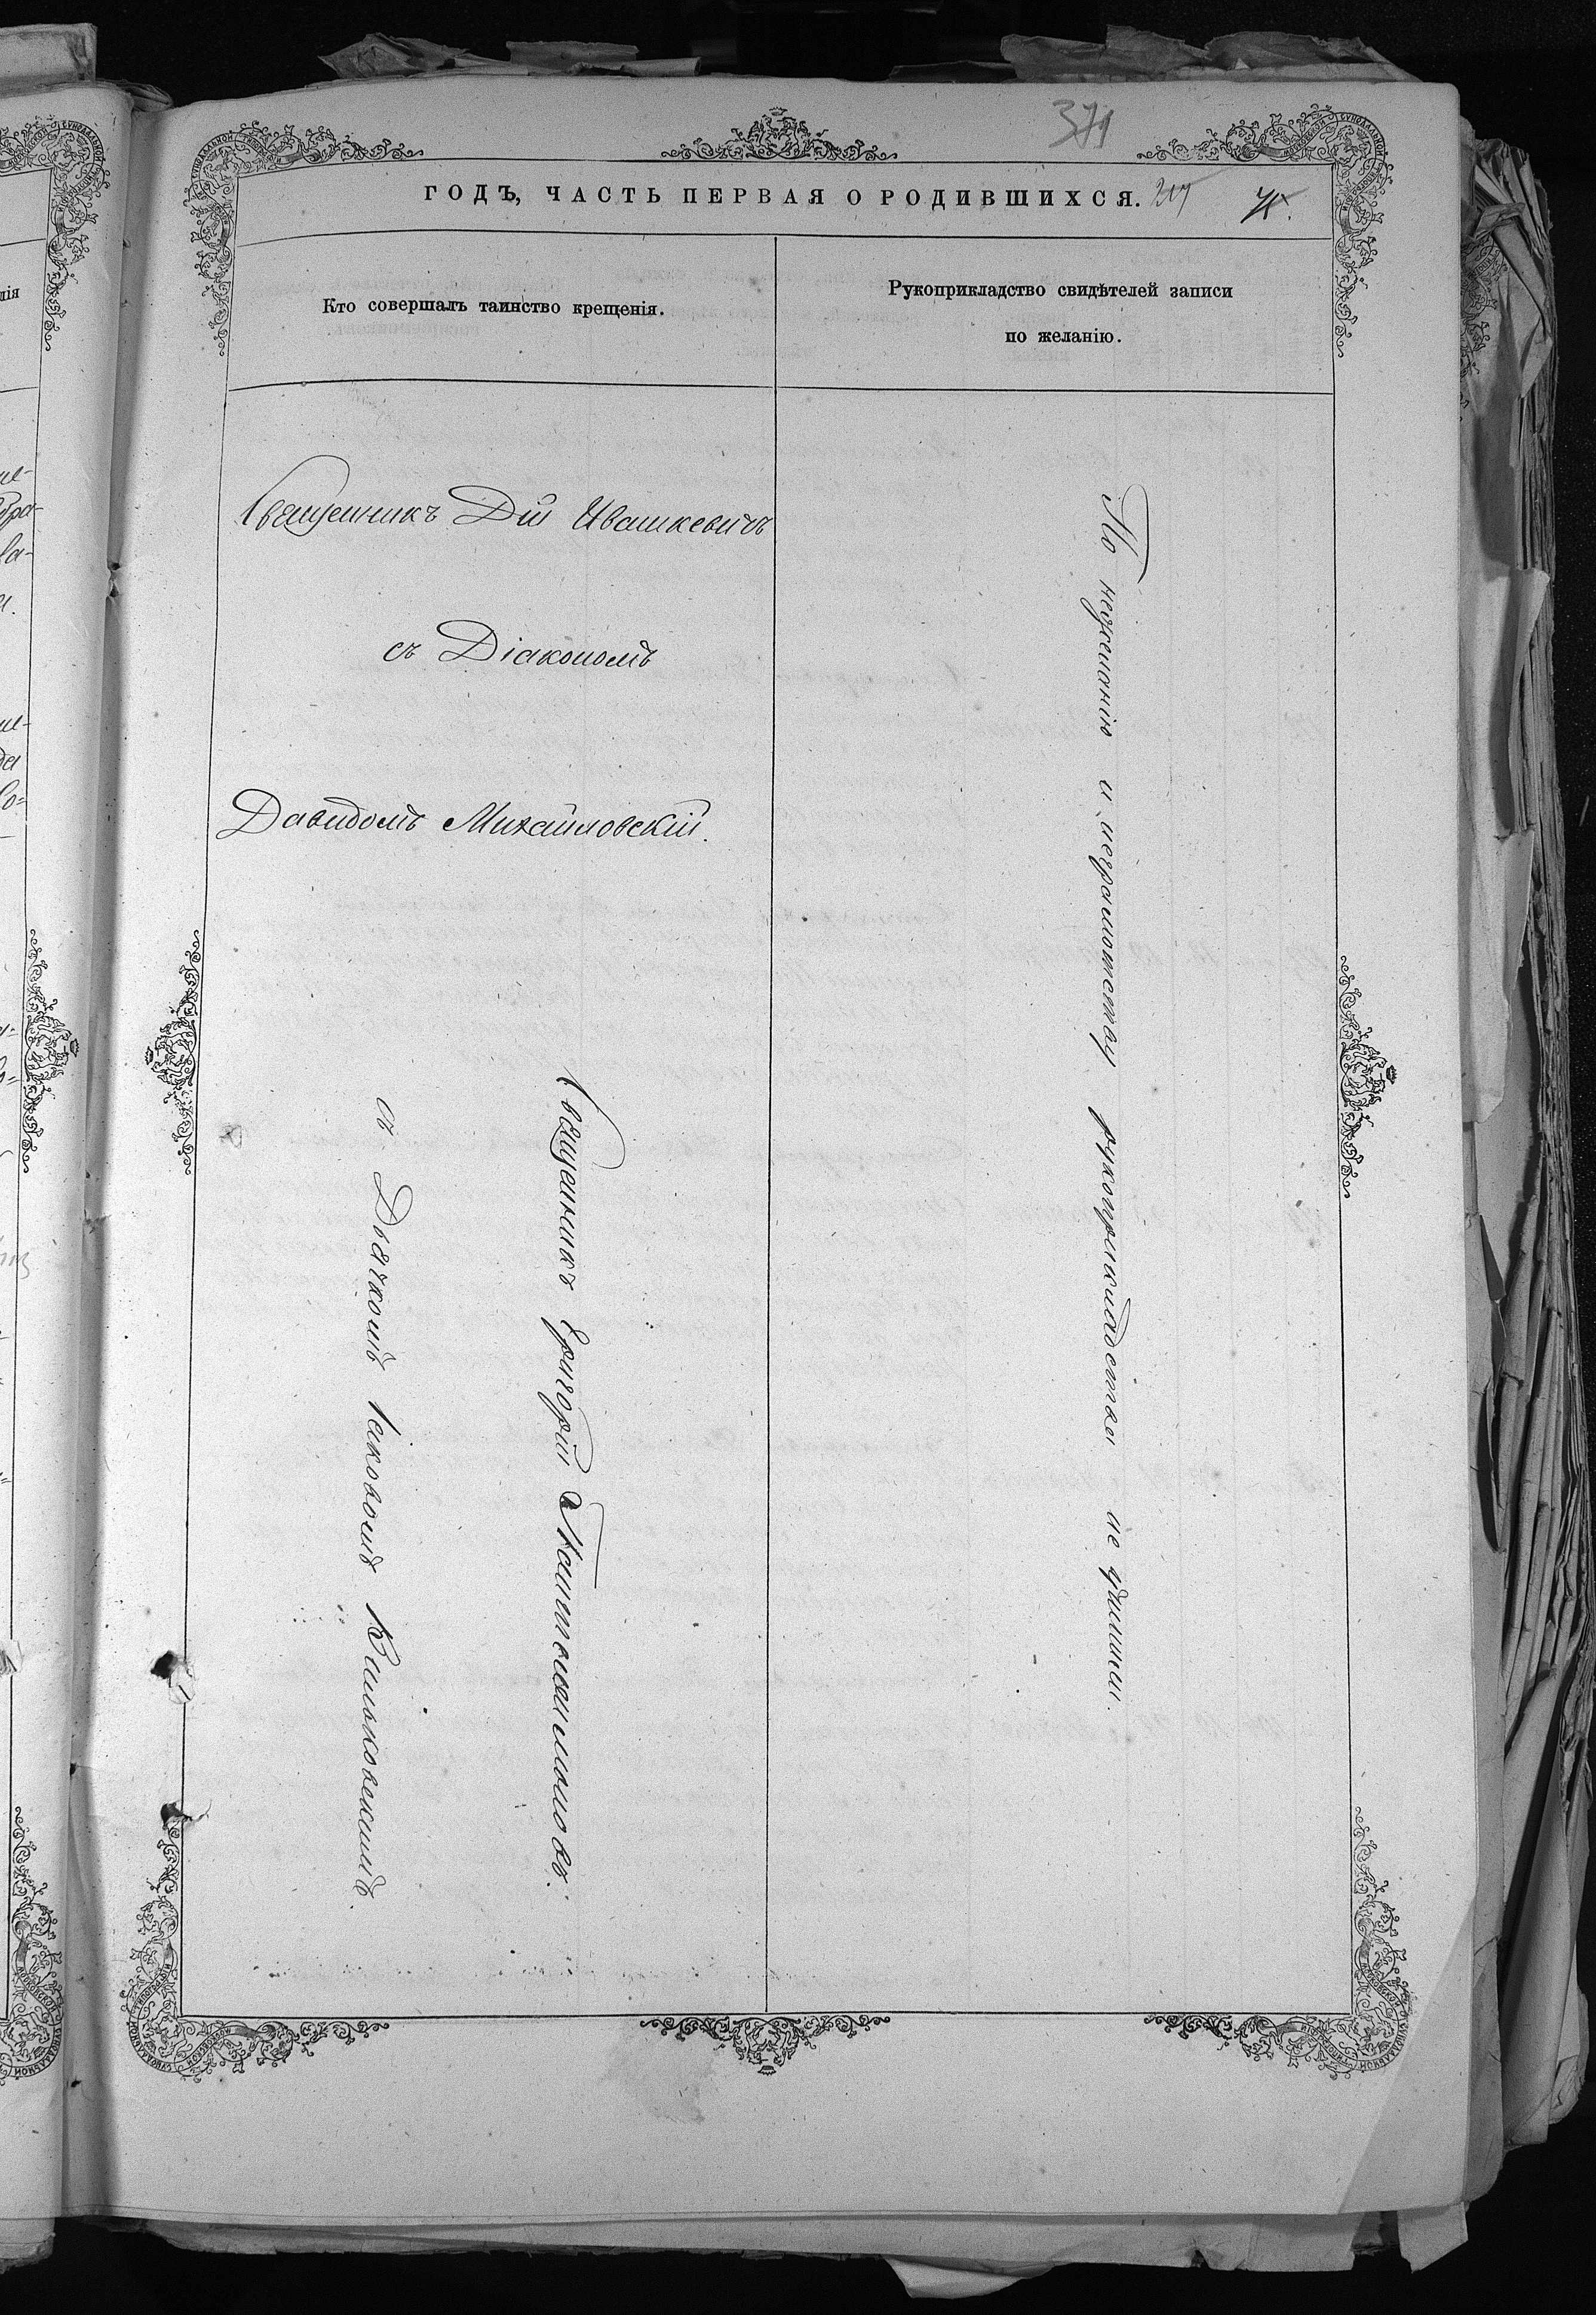 371
ГОДЪ, ЧАСТЬ ПЕРВАЯ О РОДИВШИХСЯ.
Кто совершалъ таинство крещенія.
Рукоприкладство свидѣтелей записи
по желанію.
Священникъ Дій Ивашкевичъ
съ Діакономъ
Давидомъ Михайловскій.
Священникъ Григорій Пантелеимоновъ.
съ Дьячкомъ Іаковомъ
По нежеланію и неграмотству рукоприкладства не учинили.